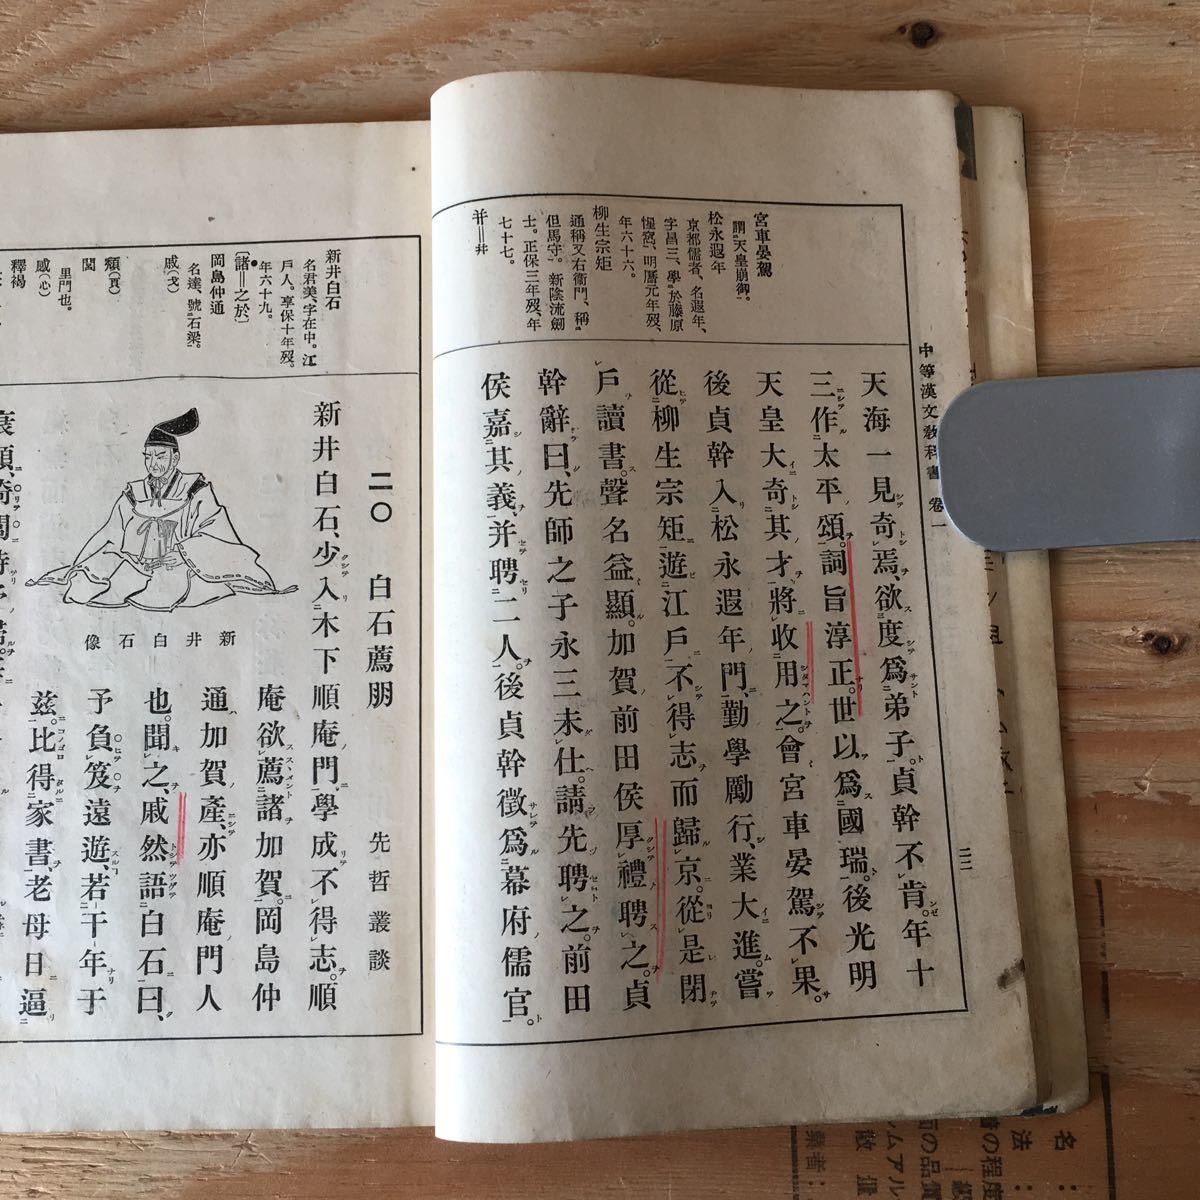 中等漢文敎科書 卷一
二二
宮車晏駕
謂天皇崩御。
松永遐年
京都儒者、名遐年、
字昌三、學於藤原
惺窩、明曆元年歿、
年六十六。
柳生宗矩
通稱又右衞門、稱
但馬守。新陰流劍
士。正保三年歿、年
七十七。
幷＝并
天海一見奇焉、欲度爲弟子。貞幹不肯。年十
三作太平頌。詞旨淳正。世以爲國瑞。後光明
天皇大奇其才、將收用之。會宮車晏駕不果。
後貞幹入松永遐年門、勤學勵行、業大進。嘗
從柳生宗矩遊江戶、不得志而歸京。從是閉
戶讀書。聲名益顯。加賀前田侯厚禮聘之。貞
幹辭曰、先師之子永三未仕。請先聘之。前田
侯嘉其義、幷聘二人。後貞幹徵爲幕府儒官。
新井白石
名君美、字在中。江
戶人。享保十年歿。
年六十九。
〔諸＝之於〕
岡島仲通
名達、號石梁。
戚(戈)
頽(頁)
閭
里門也。
慼(心)
釋褐
二〇 白石薦朋
先哲叢談
新井白石、少入木下順庵門、學成不得志。順
新井白石像
庵欲薦諸加賀。岡島仲
通加賀產、亦順庵門人
也。聞之、戚然語白石曰、
予負笈遠遊、若干年于
玆。比得家書、老母日逼